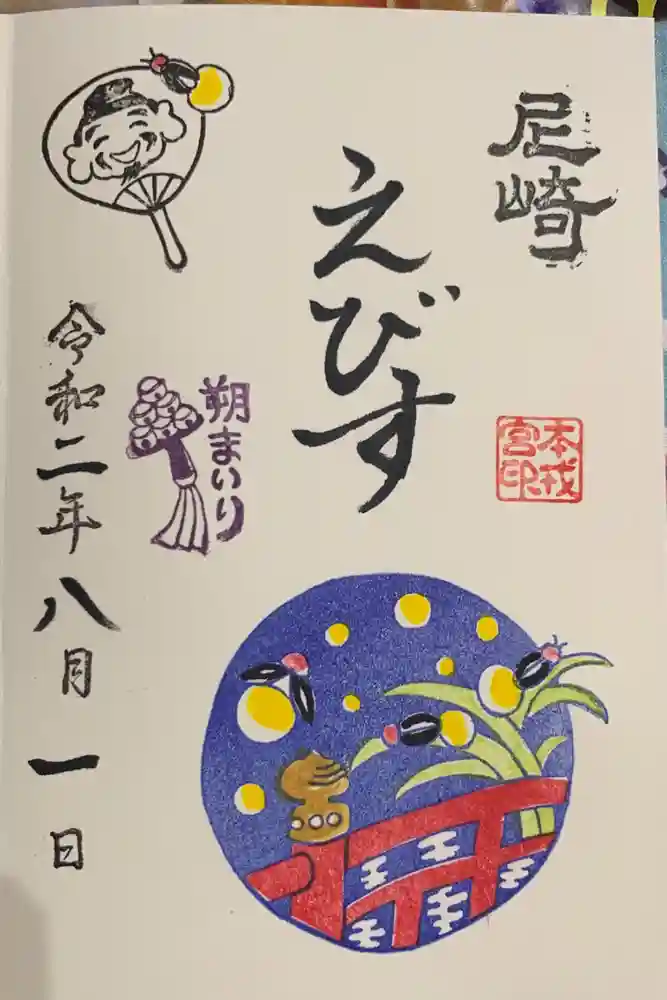 尼崎
えびす
本戎
宮印
朔まいり
令和二年八月一日